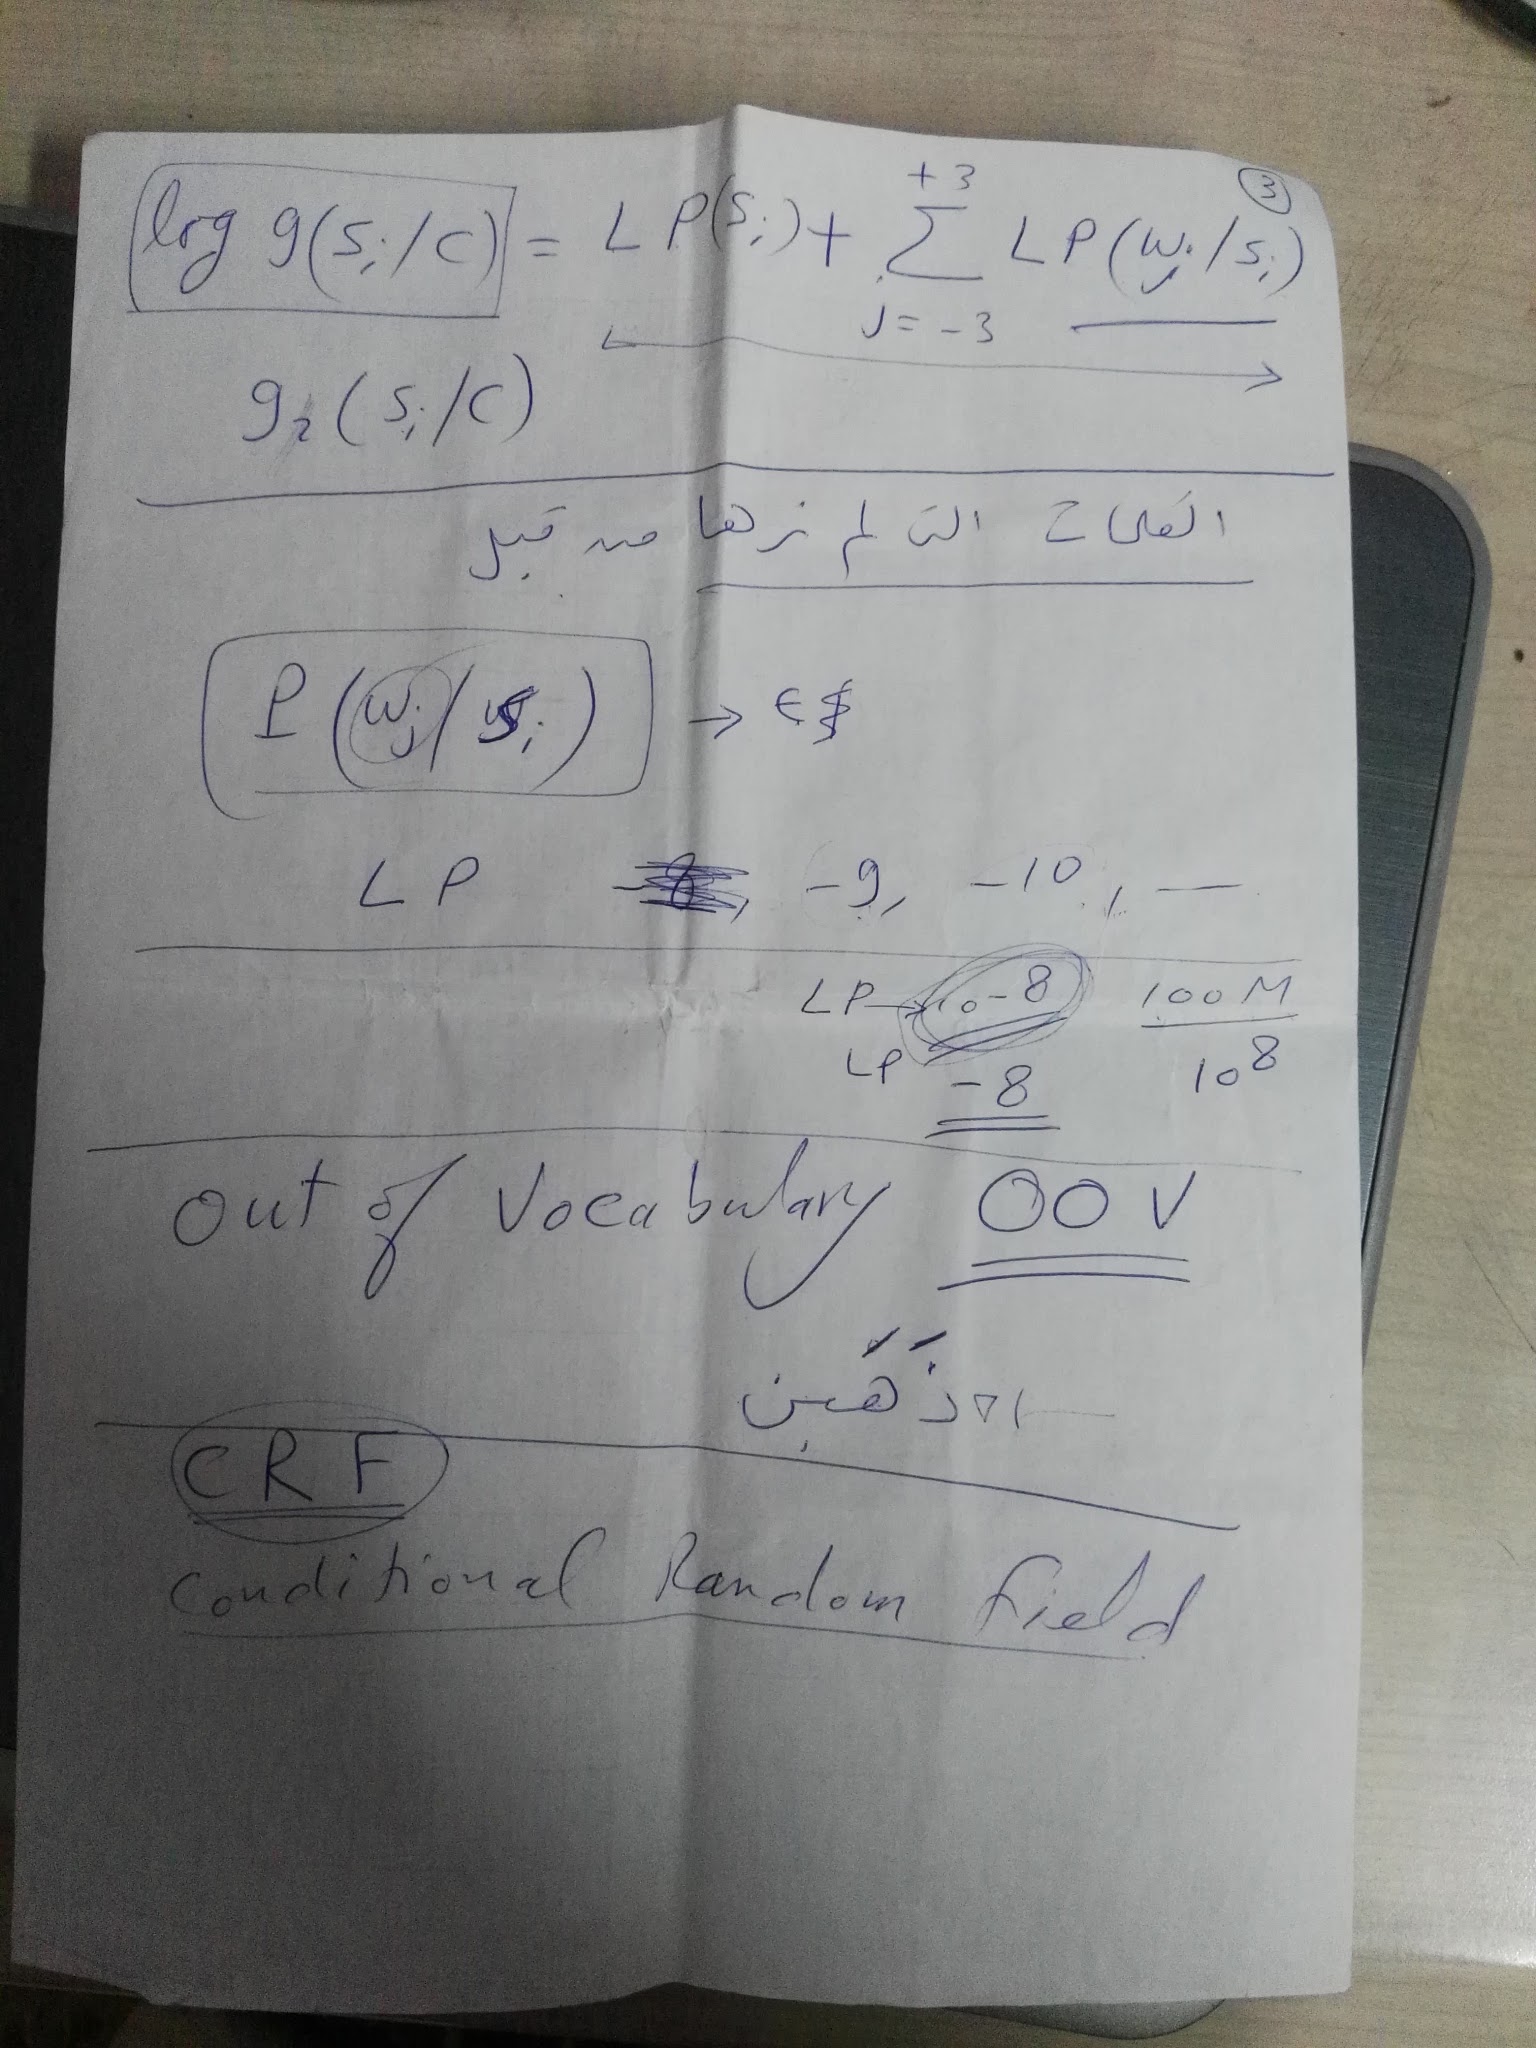 ③
log g(Sᵢ/C) = LP(Sᵢ) + Σ LP(wⱼ/Sᵢ)
+3
J = -3
g₂(Sᵢ/C)
الكلمات التي لم نرها من قبل
P(wⱼ/Sᵢ) →
LP -9, -10, —
LP → 10-8 100M
LP -8 10⁸
Out of Vocabulary OOV
CRF
Conditional Random Field